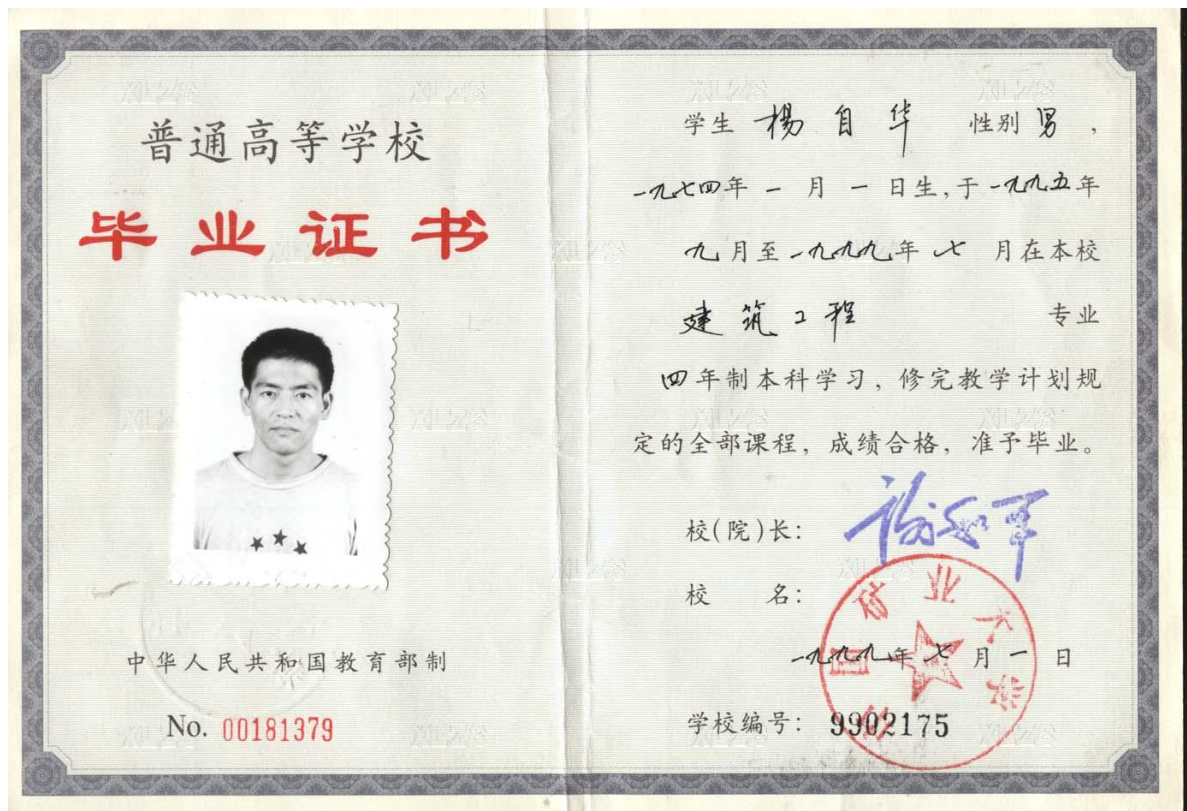 普通高等学校
毕业证书
中华人民共和国教育部制
No. 00181379
学生 楊自华 性别 男,
一九七四年 一 月 一 日生,于一九九五年
九月至一九九九年 七 月在本校
建筑工程 专业
四年制本科学习,修完教学计划规
定的全部课程,成绩合格,准予毕业。
校(院)长:
校 名:
中国矿业大学
一九九九年 七 月 一 日
学校编号: 9902175